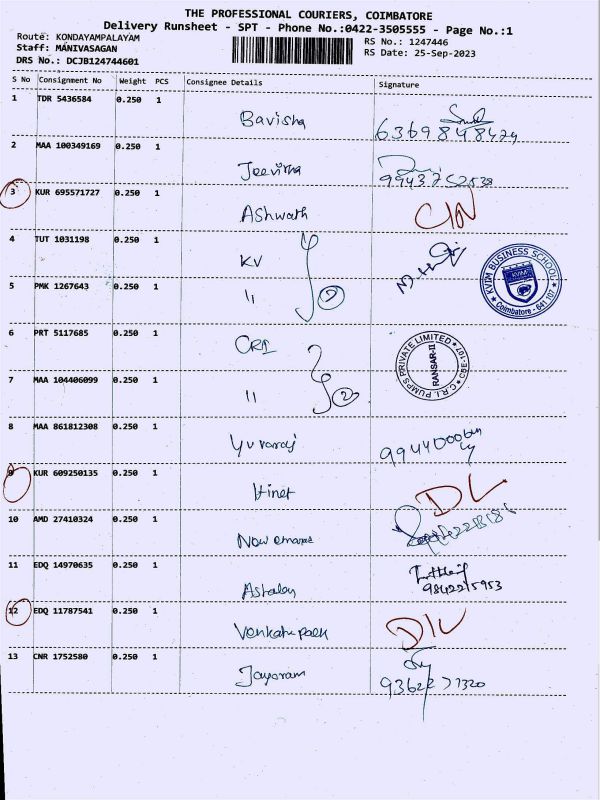 THE PROFESSIONAL COURIERS, COIMBATORE
Delivery Runsheet - SPT - Phone No.:0422-3505555 - Page No.:1
Route: KONDAYAMPALAYAM
RS No.: 1247446
Staff: MANIVASAGAN
RS Date: 25-Sep-2023
DRS No.: DCJB124744601
S No Consignment No Weight PCS Consignee Details Signature
1 TDR 5436584 0.250 1
Bavisha 6369848424
2 MAA 100349169 0.250 1
Jeevitha
3 KUR 695571727 0.250 1
Ashwath
4 TUT 1031198 0.250 1
KV 2
KVIM BUSINESS SCHOOL
KVIM
Coimbatore - 641 107
5 PMK 1267643 0.250 1
"
6 PRT 5117685 0.250 1
CRI 2
C.R.I. PUMPS PRIVATE LIMITED
RANSAR-II
CBE-107
7 MAA 104406099 0.250 1
"
8 MAA 861812308 0.250 1
Yuvaraj
9 KUR 609250135 0.250 1
DL
10 AMD 27410324 0.250 1
11 EDQ 14970635 0.250 1
9842215953
12 EDQ 11787541 0.250 1
13 CNR 1752580 0.250 1
Jayaram